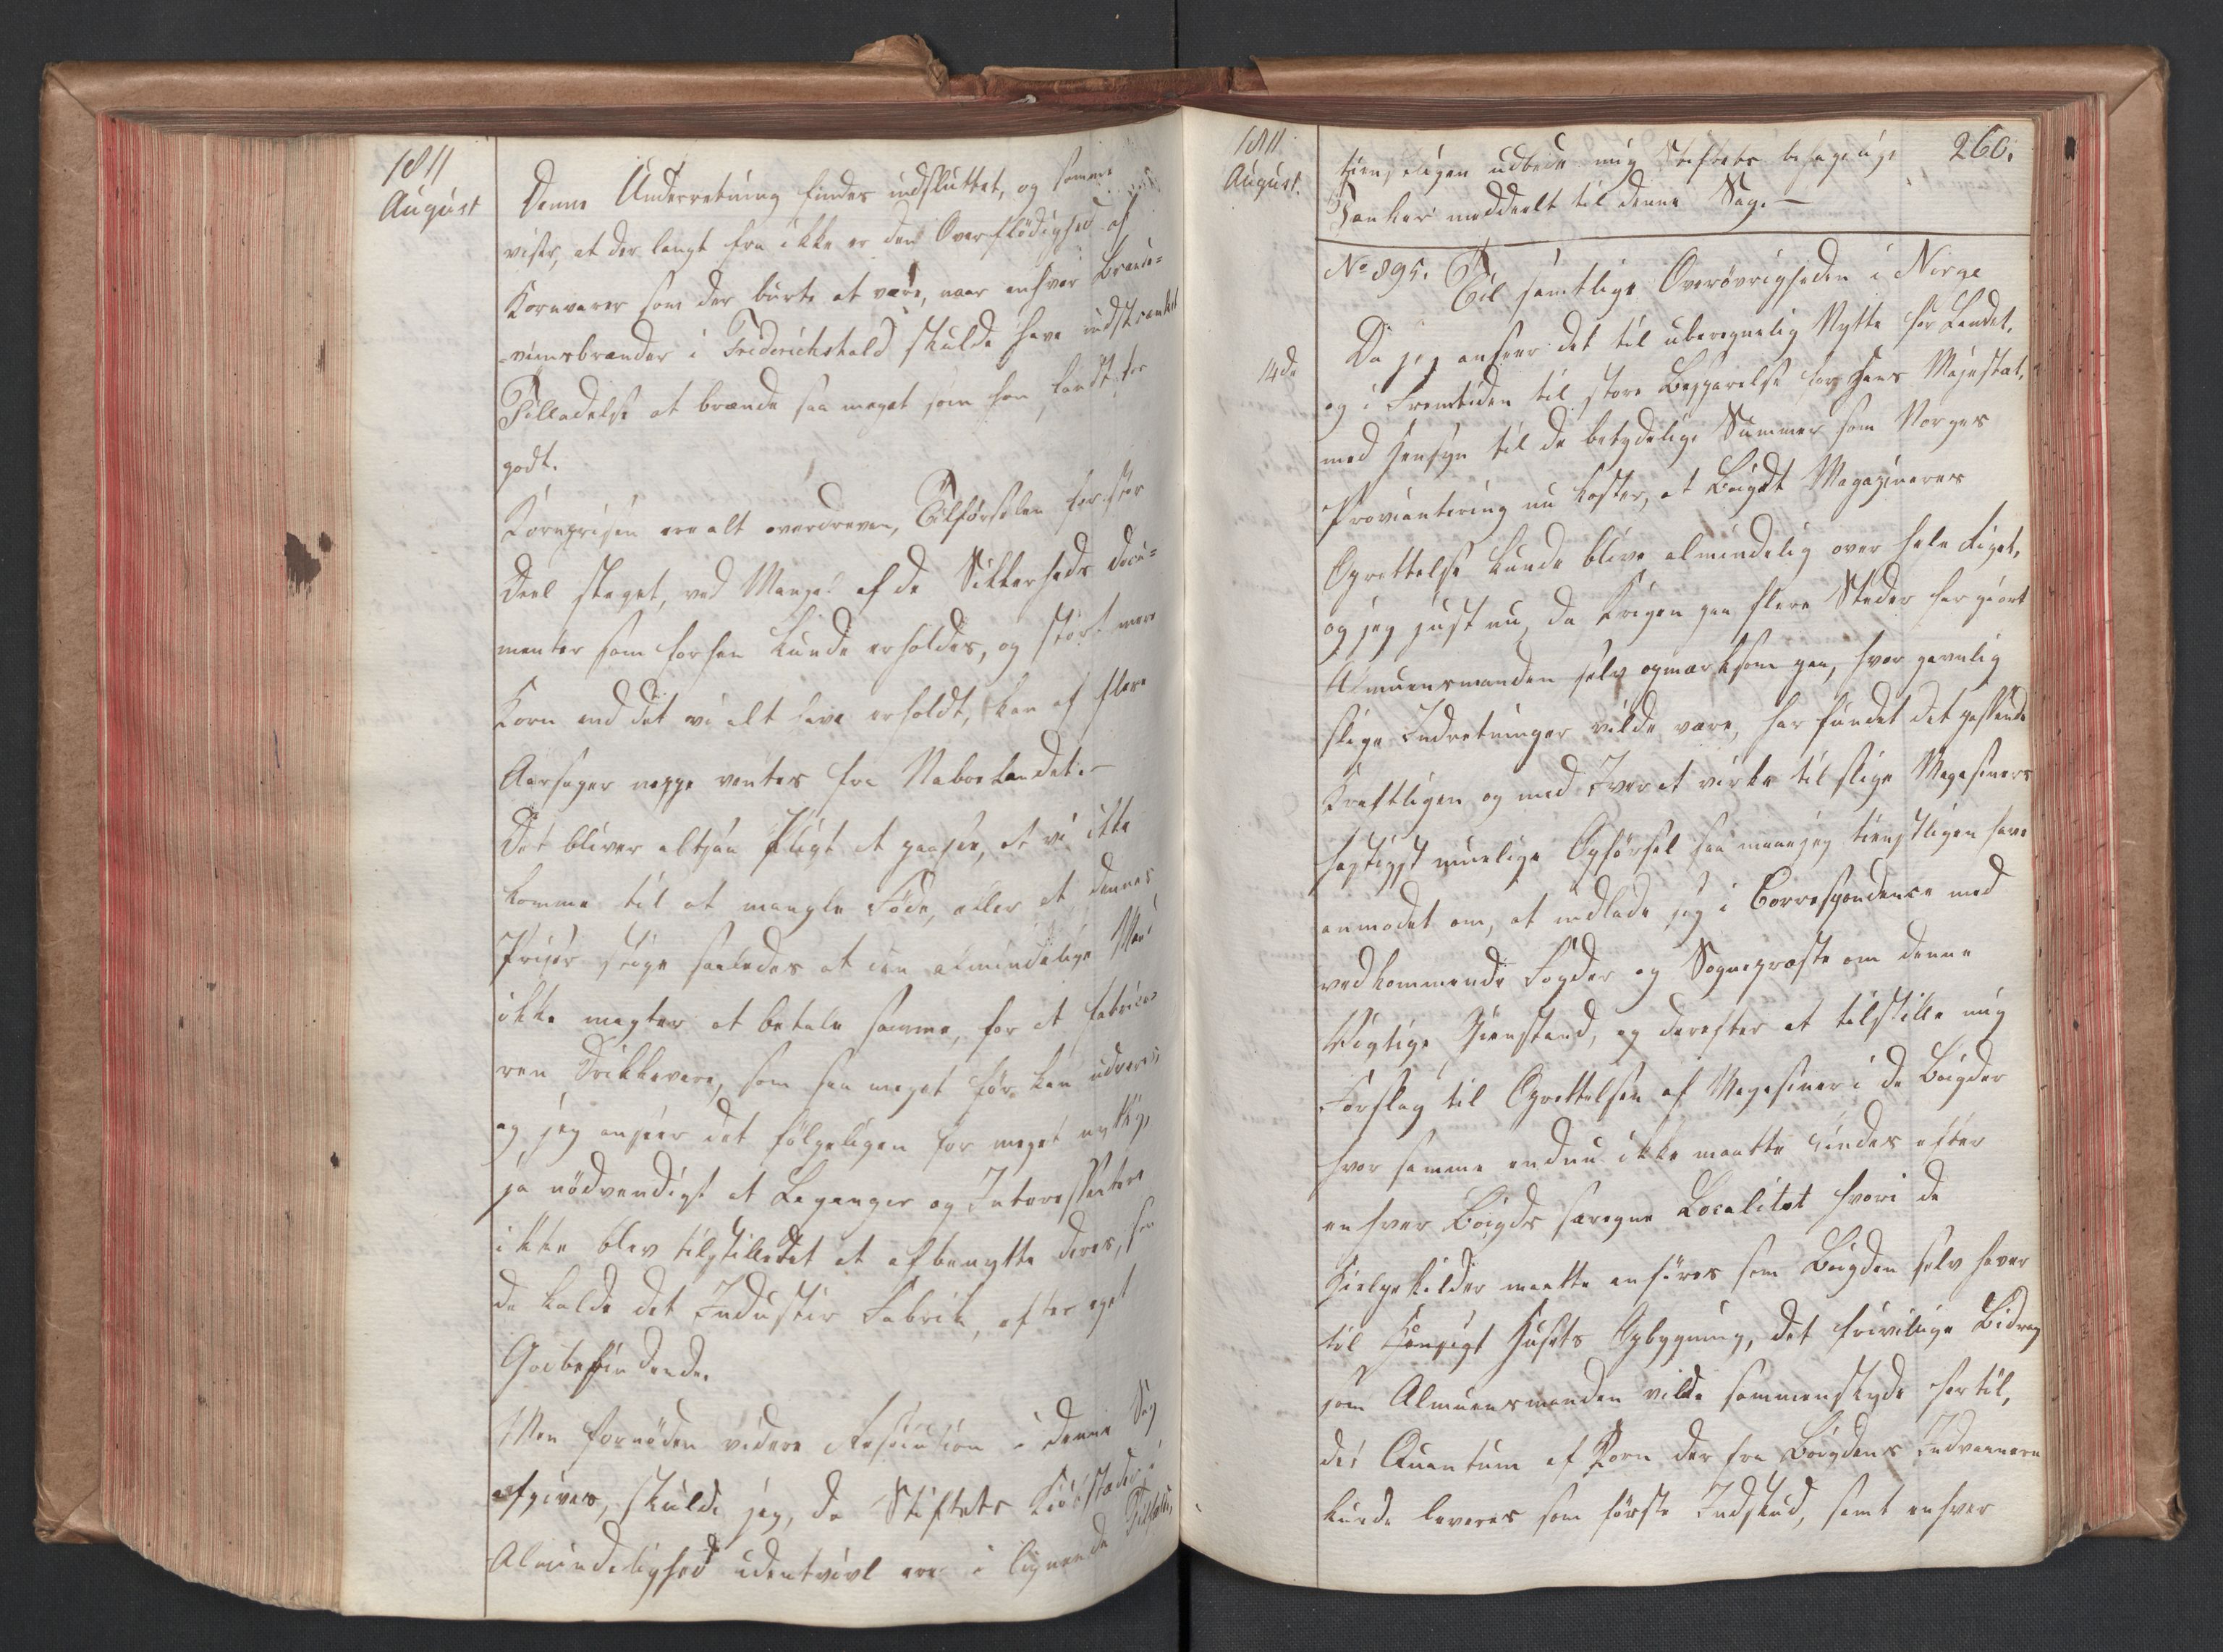 1811
August
Denne Underretning findes indsluttet, og samme
viser, at der langt fra ikke er den Overflödighed af
Kornvarer som der burte at være, naar enhver Brænde=
=viinsbrænder i Friderichshald skulde have uindskrænket
Tilladelse at brænde saa meget som han fandt for
godt.
Kornprisen ere alt overdreven, Tilförselen for stor
Deel staget, ved Mangel af de Sikkerheds Docu=
menter som forhen kunde erholdes, og stort mere
Korn end det vi alt have erholdt, kan af flere
Aarsager neppe ventes fra Naboelandet. —
Det bliver altsaa Pligt at paasee, at vi ikke
komme til at mangle Föde, eller at dennes
Priser stige saaledes at den almindelige Mand
ikke magter at betale samme, for at fabrice=
ren Drikkevare, som saa meget för kan undværes
og jeg anseer det fölgeligen for meget nyttig,
ja nödvendigt at Leganger og Interessentere
ikke blev tilstilledet at afbenytte deres, som
de kalde det Industie Fabrik, efter eget
Godbefindende.
Men forinden videre Resolution i denne Sag
afgives, skulde jeg, da Stiftets Kiöbstæder i
Almindelighed udentvivl ere i lignende Tilfælde,
1811
August.
260.
tienstligen udbede mig Stiftets behagelige
Tanker meddeelt til denne Sag. —
No 895. Til samtlige Overövrigheden i Norge
14de
Da jeg anseer det til uberegnelig Nytte for Landet,
og i Fremtiden til store Besparelse for Hans Majestæt,
med Hensyn til de betydelige Summer som Norges
Proviantering nu koster, at Bøigdt Magazinernes
Oprettelse kunde blive almindelig over hele Riget,
og jeg just nu, da Krigen paa flere Stæder har giort
Almuesmanden selv opmærksom paa, hvor gavnlig
slige Indretninger vilde være, har fundet det passende
kraftligen og med Iver at virke til slige Magasiners
hastigst muelige Opförsel saa maae jeg tienstligen have
anmodet om, at indlade sig i Correspondence med
vedkommende Fogder og Sognepræste om denne
Vigtige Gienstand, og derefter at tilstille mig
Forslag til Oprettelsen af Magasiner i de Bøigder
hvor samme endnu ikke maatte findes efter
enhver Bøigds særegne Localitet hvori de
Hielpekilder maatte anföres som Bøigden selv haver
til Hensigt Husets Opbygning, det frivilige Bidrag
som Almuesmanden vilde sammenskyde hertil,
det Quantum af Korn der fra Bøigdens Indvaanere
kunde leveres som förste Indskud, samt enhver